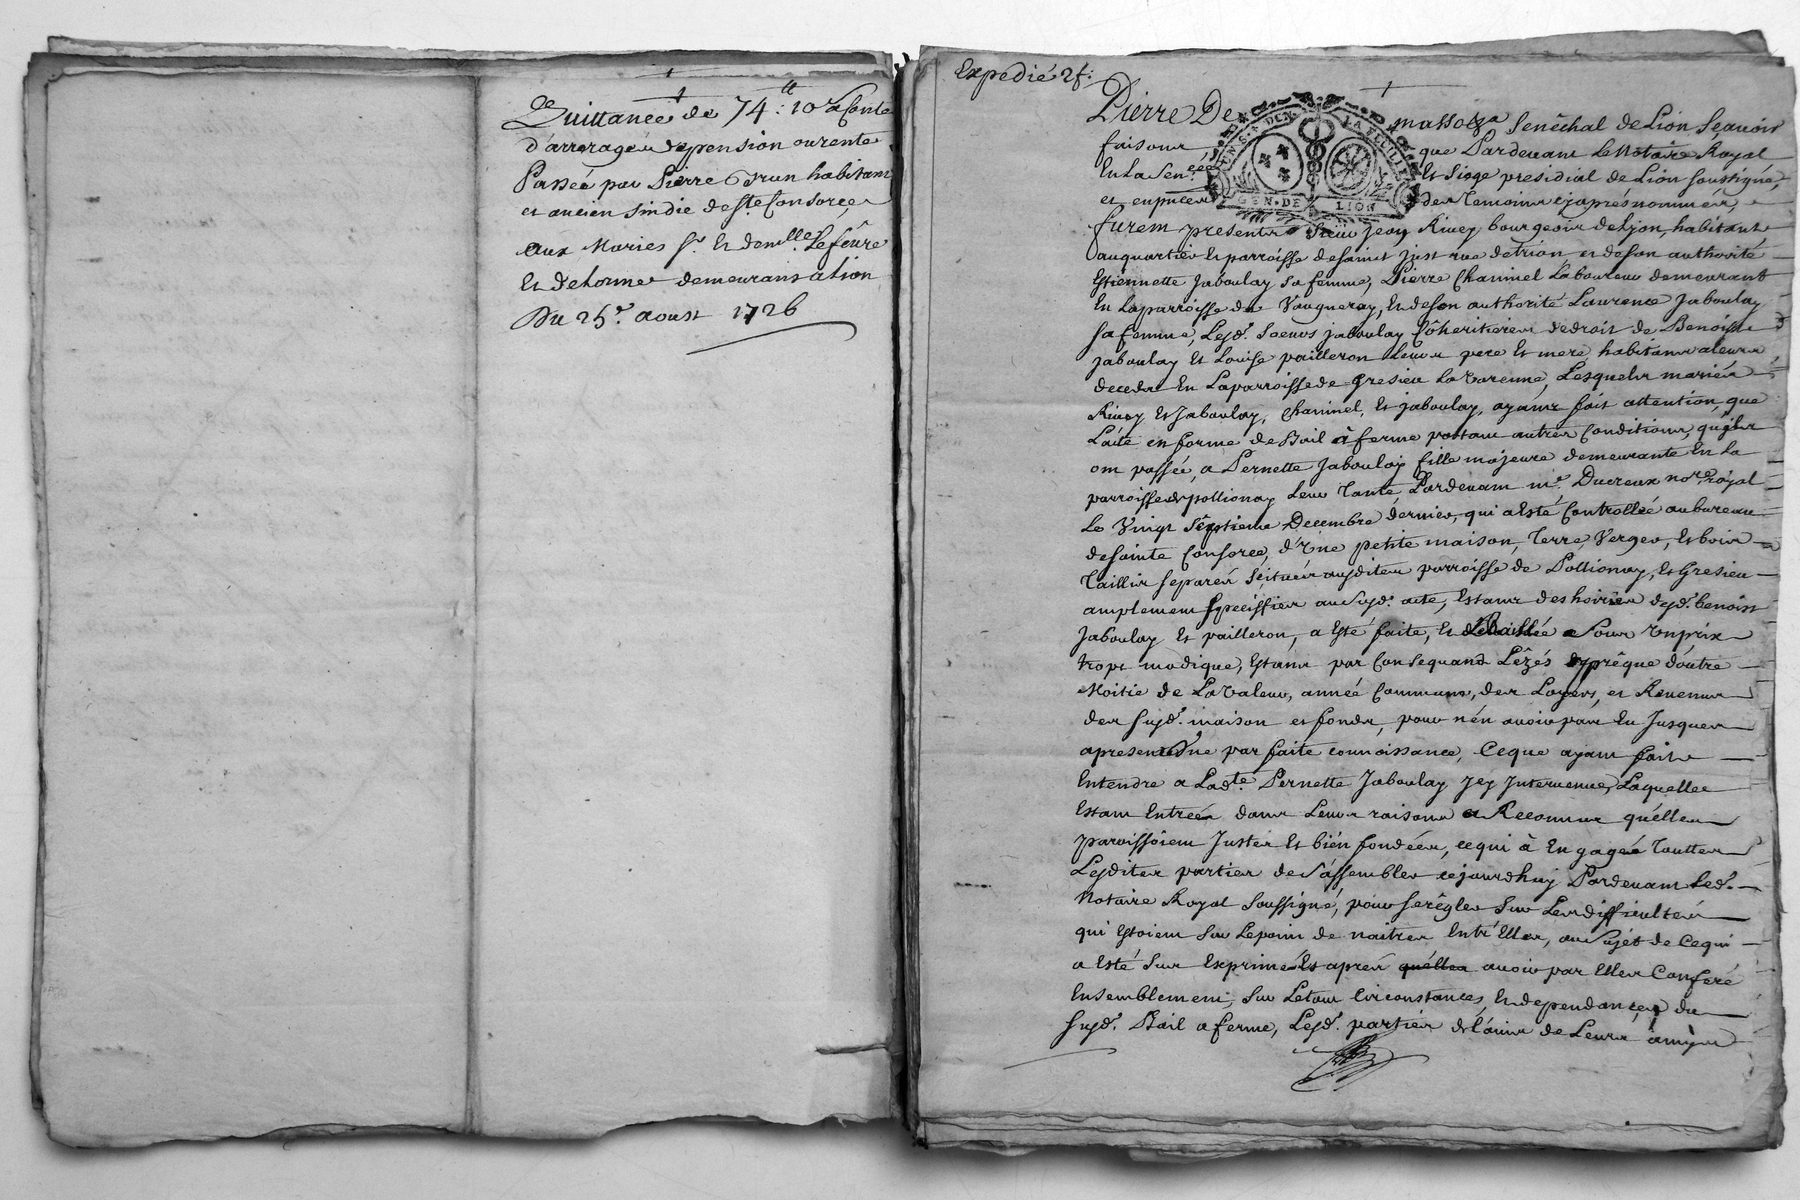 Quittance de 74 lt: 10 s a Conte
d'arrerages de pension ou rente
Passée par Pierre Brun habitant
et ancien sindic de Ste Consorce,
aux Maries Sr et demlle Lefevre
Et Delorme demeurans a lion
Du 25e. aoust 1726
Expedié 2 f:
Pierre De massoza Senêchal de Lion Sçauoir
faisons que Pardeuant Le Notaire Royal
En La Sen.ée Et Siege presidial de Lion soussigné,
et en presence des Temoins cy aprés nommés,
GEN. DE LION
furent presents Sieur jean Riuey bourgeois de Lyon, habitant
au quartier Et parroisse de saint just rue de trion et de son authorité
Estiennette Jaboulay Sa femme, Pierre Chaninel Laboureur demeurant
En La parroisse de Vaugneray, Et de son authorité Laurence Jaboulay
sa femme, Lesd. Soeurs jaboulay Cohéritieres de droit de Benoist
jaboulay Et Louise pailleron Leurs pere Et mere habitans a leurs
decedés En La parroisse de Gresieu La Varenne, Lesquels mariés
Riuey Et Jaboulay, Chaninel, Et jaboulay, ayant fait attention, que
L'acte en forme de Bail à ferme portant autres Conditions, qu'ils
ont passée, a Pernette Jaboulay fille majeure demeurante En La
parroisse de pollionay Leur Tante, Pardeuant me. Ducreux nore. röyal
Le Vingt Séptieme Decembre dernier, qui a Esté Controllée au bureau
de sainte Consorce, d'Vne petite maison, Terre, Verger, Et bois
Taillis separés scitués ausdites parroisse de Pollionay, Et Gresieu
amplement speciffies au Susd. acte, Estant des hoiries desd. benoist
Jaboulay Et pailleron, a Esté faite, Et Baillée Pour Vn prix
trope modique, Estant par Consequand Lêzés de prêque d'outre
Moitie de La Valeur, année Commune, des Loyers, et Reuenus
des susd. maison et fonds, pour n'en auoir pas Eu Jusques
a present Vne parfaite connoissance, Ce que ayant fait
Entendre a Ladte. Pernette Jaboulay Jcy Interuenue, Laquelle
Estant Entrée dans Leurs raisons a Reconnus qu'elles
paroissoient Justes Et bién fondées, ce qui à Engagé Touttes
Lesdites parties de s'assembler cejourdhuy Pardeuant Led.
Notaire Royal soussigné, pour se règler sur Les difficultés
qui Estoient Sur Le point de naitres Entr'Elles, au Sujét de Ce qui
a Esté Sur Exprimé Et aprés qu'elles auoir par Elles Conferé
Ensemblement, Sur Le tour Circonstances, Et dependances du
Susd. Bail a ferme, Lesd. parties de l'auis de Leurs amys